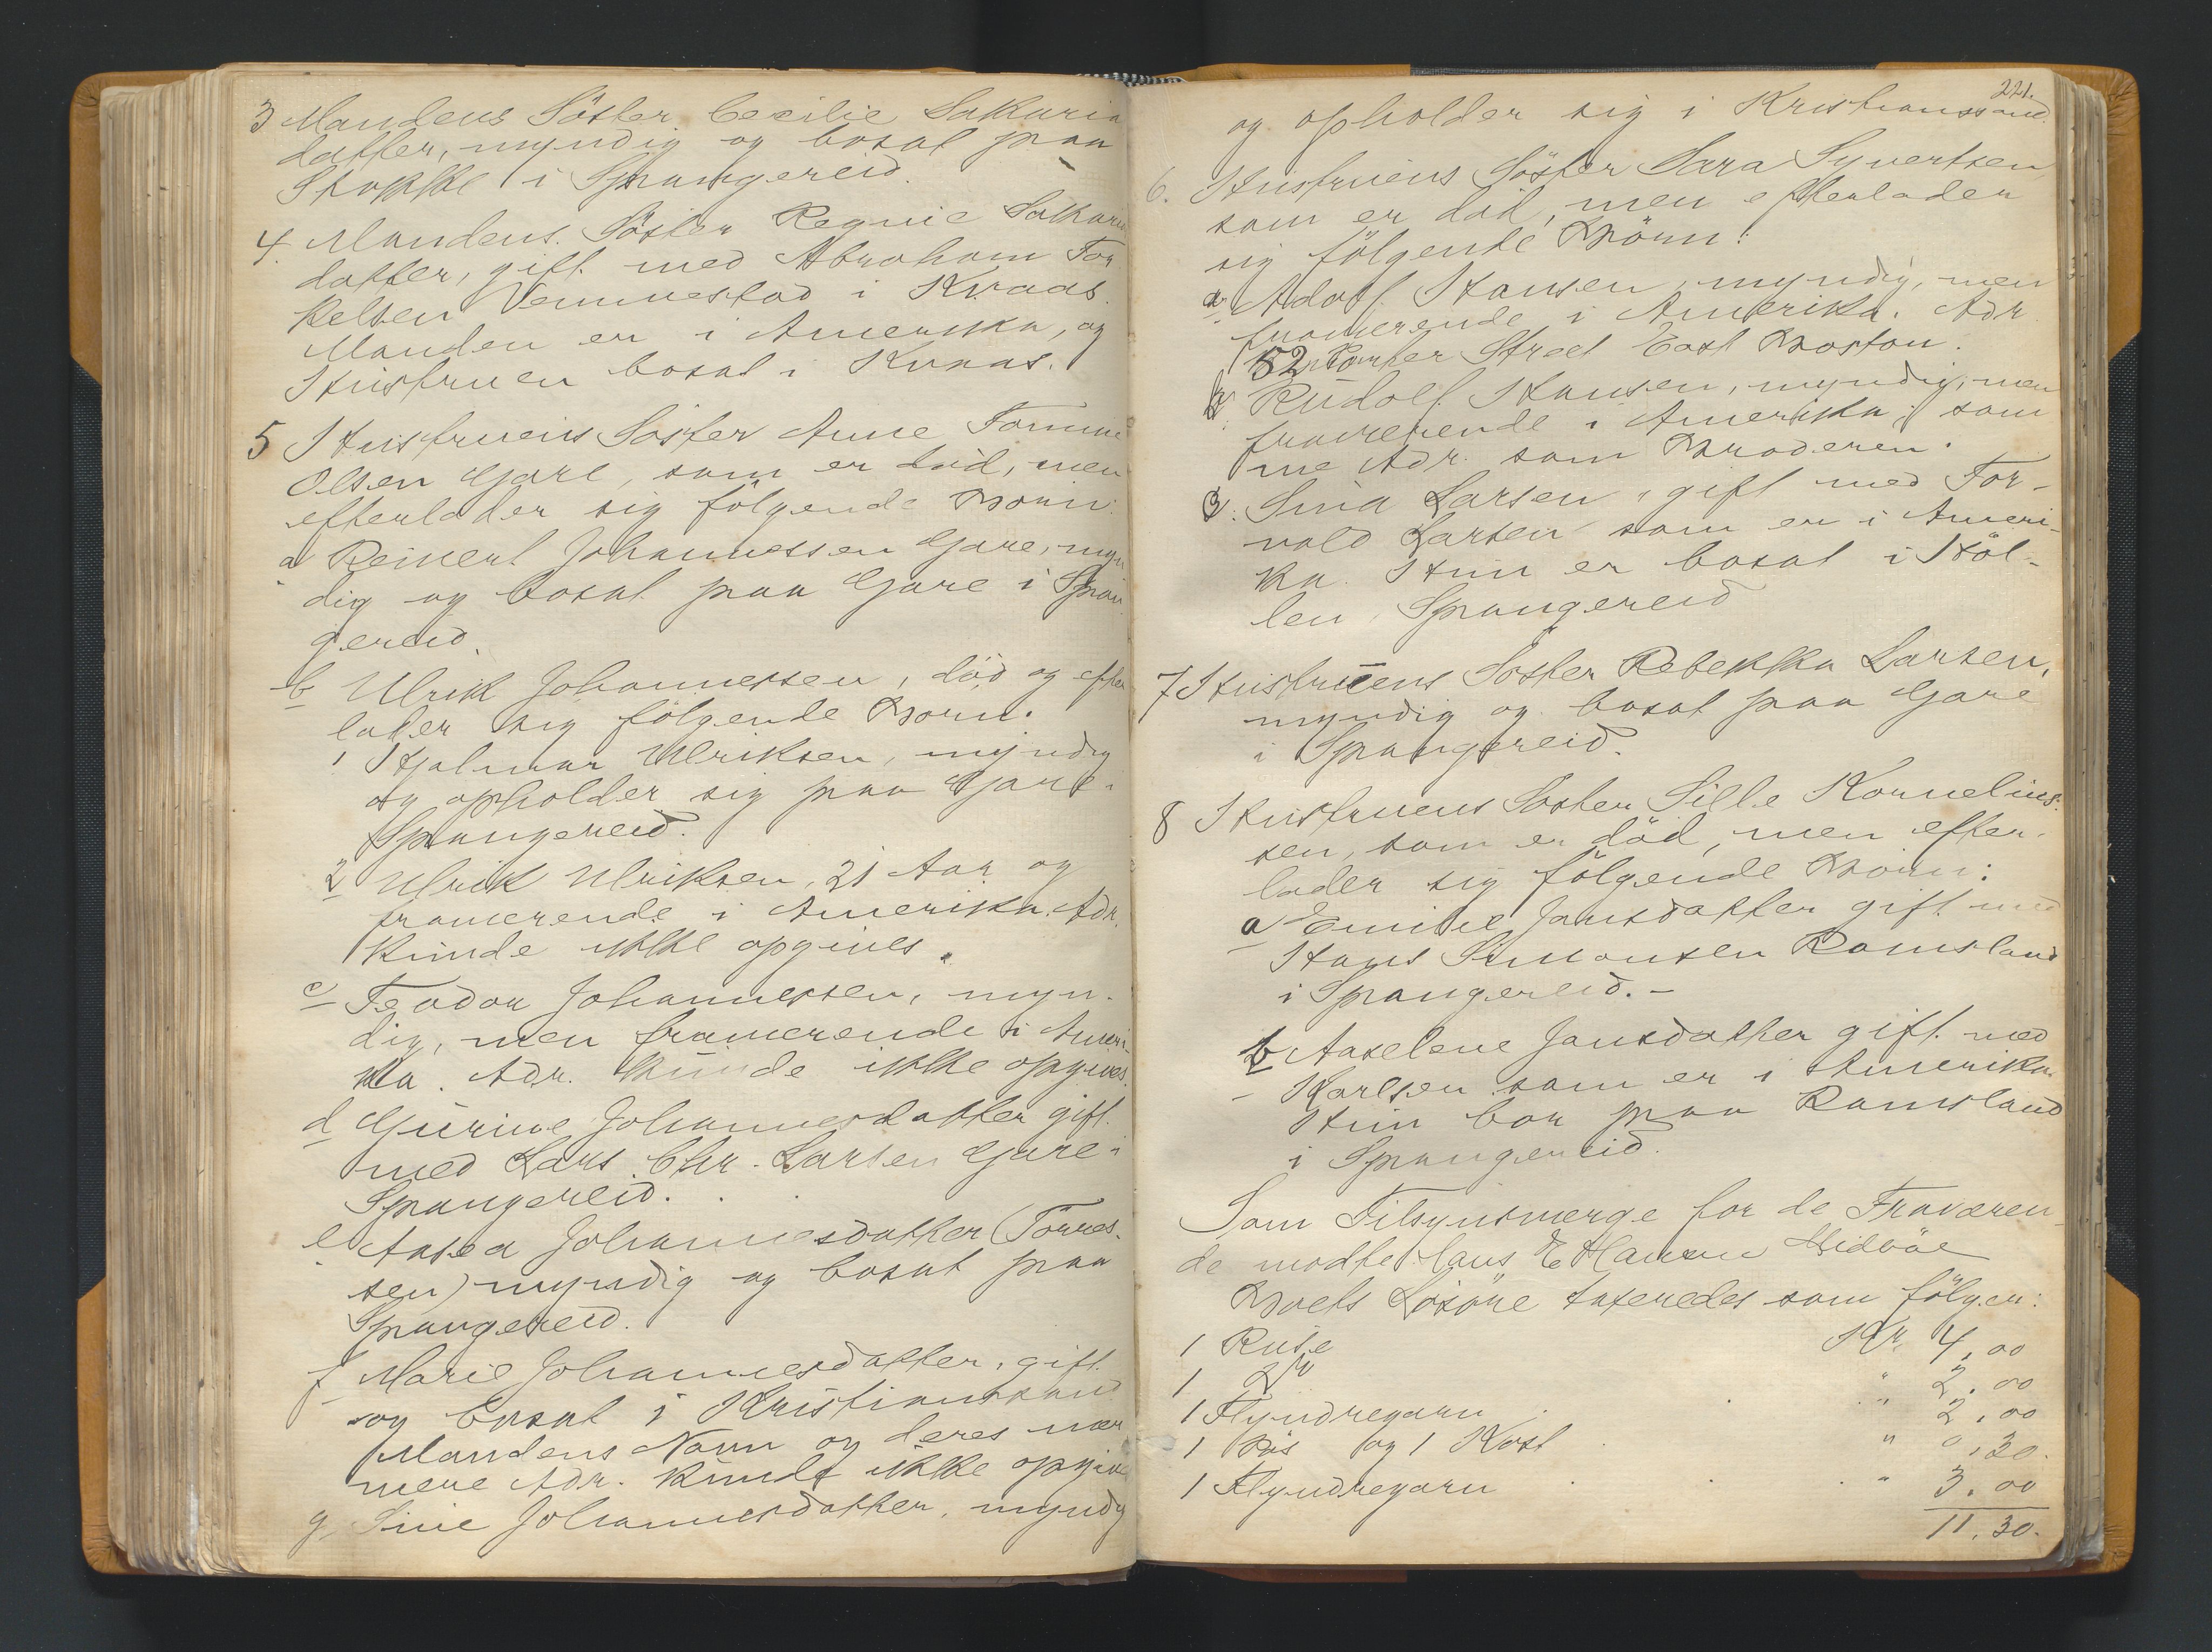 3 Mandens Söster Cecilie Sakaria
datter, myndig og bosat paa
Stokke i Spangereid.
4. Mandens Söster Regine Sakaria
datter, gift med Abraham Tor
kelsen Vennestad i Kvaas.
Manden er i Amerika, og
Hustruen bosat i Kvaas.
5 Hustruens Söster Anne Tomine
Olsen Gare, som er död, men
efterlader sig fölgende Börn:
a Reinert Johannessen Gare, myn
dig og bosat paa Gare i Span
gereid.
b Ulrik Johannessen, död og efter
lader sig fölgende Börn.
1 Hjalmar Ulriksen, myndig
og opholder sig paa Gare i
Spangereid.
2 Ulrik Ulriksen, 21 Aar og
fraværende i Amerika. Adr.
kunde ikke opgives.
c Teodor Johannessen, myn-
dig, men fraværende i Ameri-
ka. Adr. kunde ikke opgives.
d Gurine Johannesdatter gift
med Lars Chr. Larsen Gare i
Spangereid.
e Aasea Johannesdatter (Törres-
sen) myndig og bosat paa
Spangereid.
f Marie Johannesdatter, gift
og bosat i Kristianssand
Mandens Navn og deres nær
mere Adr. kunde ikke opgives
g. Sine Johannesdatter, myndig
221.
og opholder sig i Kristianssand.
6. Hustruens Söster Sara Syvertsen
som er död, men efterlader
sig fölgende Börn:
a Adolf Hansen, myndig, men
fraværende i Amerika. Adr.
52 Porter Street East Boston.
b Rudolf Hansen, myndig, men
fraværende i Amerika, sam
me Adr. som Broderen.
3. Sina Larsen, gift med Tor-
vald Larsen som er i Ameri-
ka. Hun er bosat i Höl-
len, Spangereid
7 Hustruens Söster Rebekka Larsen,
myndig og bosat paa Gare
i Spangereid.
8 Hustruens Söster Sille Kornelius-
sen, som er död, men efter-
lader sig fölgende Börn:
a Emilie Jansdatter gift med
Hans Simonsen Ramsland
i Spangereid. -
b Aaselene Jansdatter gift med
- Karlsen som er i Amerika.
Hun bor paa Ramsland
i Spangereid.
Som Tilsynsværge for de Fraværen-
de mödte Hans E Hansen Midböe
Boets Lösöre taxeredes som fölger:
1 Ruse Kr. 4,00
1 Do " 2,00
1 Flyndregarn " 2,00
1 Bös og 1 Kost " 0,30.
1 Flyndregarn " 3,00
11,30.